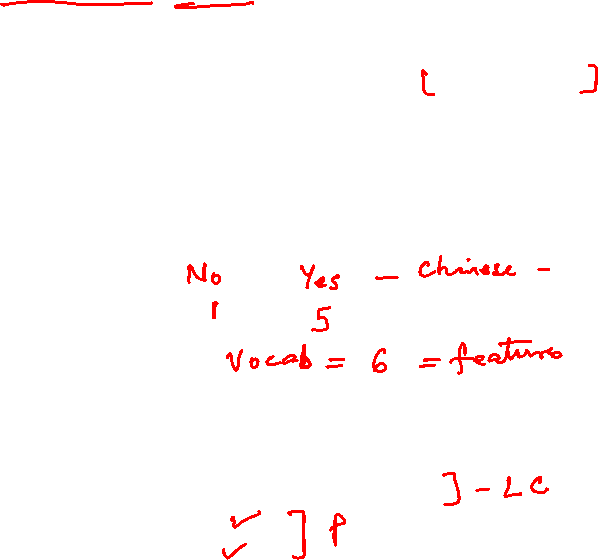 [ ]
No Yes - Chinese -
1 5
Vocab = 6 = features
] - LC
✓ ] P
✓